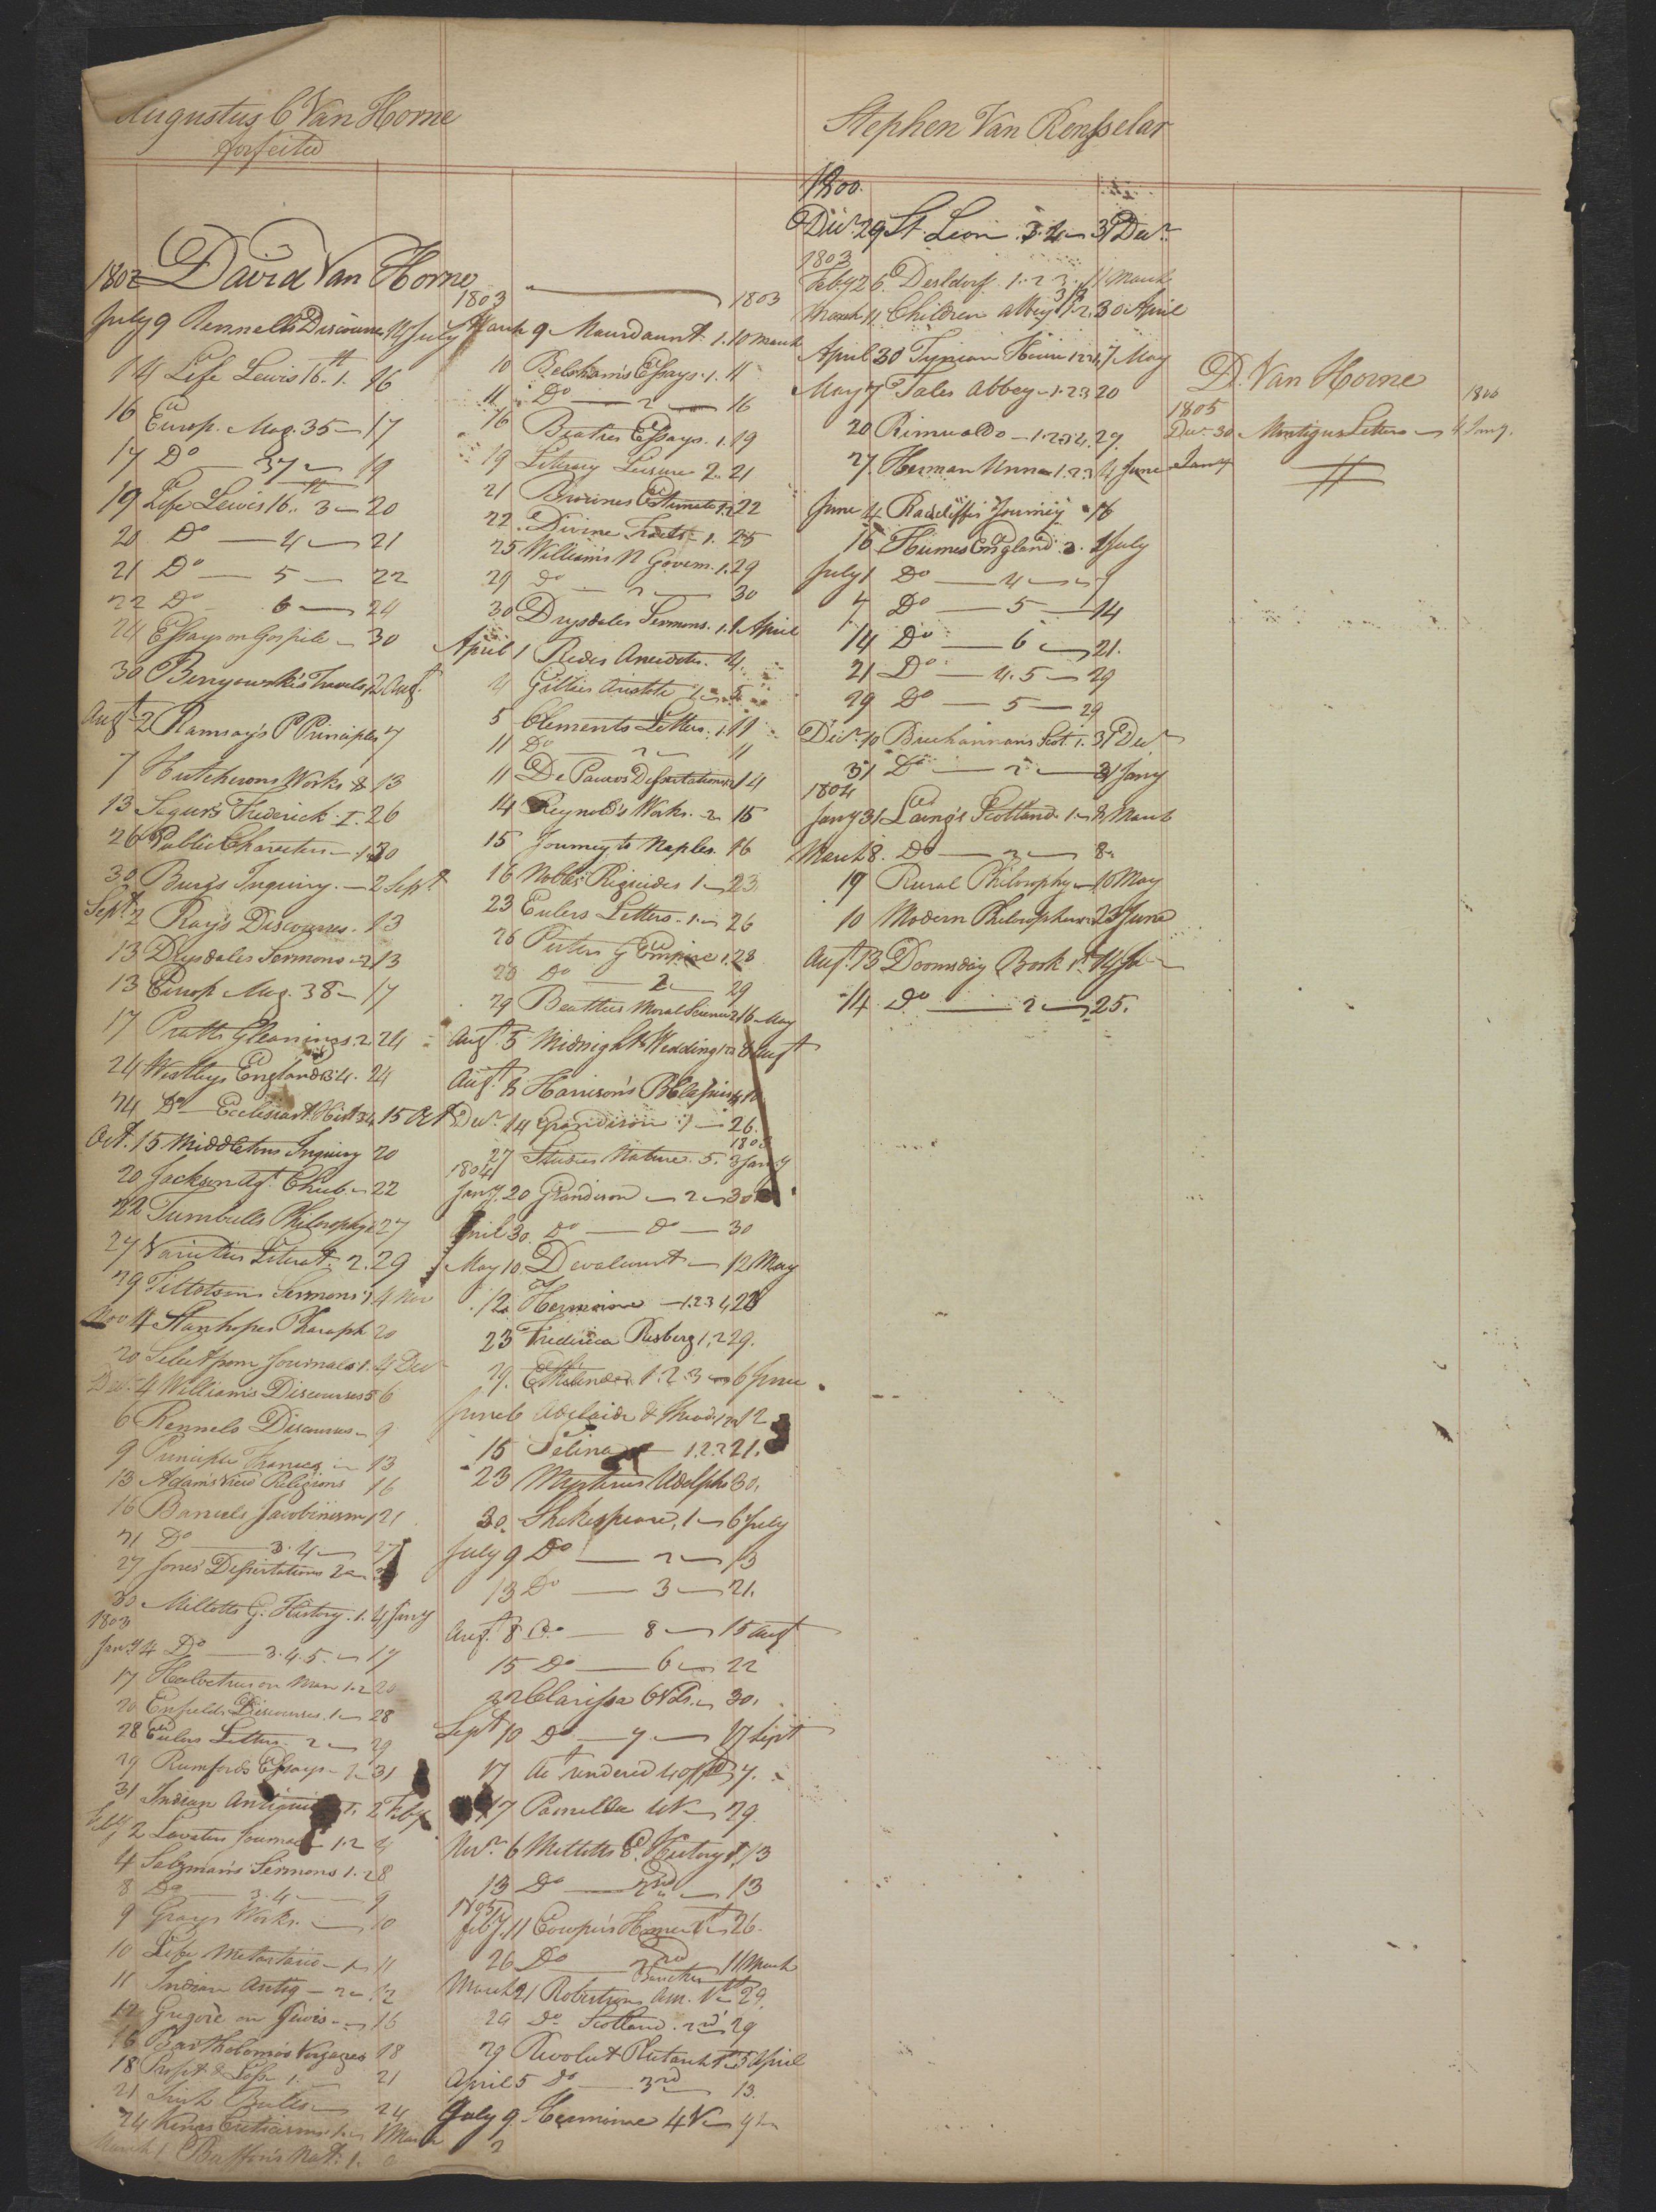 Augustus C Van Horne
forfeited
1802 David Van Horne
July 9 Rennells Discourses 14 July
14 Life Lewis 16th 1. 16
16 Europ. Mag. 35 — 17
17 Do — 37 — 19
19 Life Lewis 16th 3 — 20
20 Do — 4 — 21
21 Do — 5 — 22
22 Do — 6 — 24
24 Essays on Gospile — 30
30 Benyowski's Travels 2 Augt
Augt 2 Ramsay's P Principles 7
7 Hutchesons Works & 13
13 Segur's Frederick . I . 26
26 Public Characters — 30
30 Burgs Inquiry. — 2 Sept
Sept 2 Ray's Discourses. 13
13 Drysdales Sermons 2 13
13 Europ Mag. 38 — 17
17 Pratts Gleanings. 2. 24
24 Westleys England 3.4. 24
24 Do Ecclesiast. Hist 3.4. 15 Oct
Oct. 15 Middletons Inquiry 20
20 Jackson Agt Chub. — 22
22 Turnbulls Philosophy 27
27 Varieties Literat. 2. 29
29 Tillotsons Sermons 4 Nov
Nov 4 Stanhopes Pharaph 20
20 Select from Journals 1. 4 Decr
Decr 4 Williams Discourses 6
6 Rennels Discourses — 9
9 Principles 13
13 Adams View Religions 16
16 Barruels Jacobinism 21
21 Do — 3.4 — 27
27 Jones Dissertations 2 —
30 Millotts G. History. 1. 4 Jany
1803
Jany 4 Do — 3.4.5. — 17
17 Helvetius on Man 1.2 20
20 Enfields Discourses. 1 — 28
28 Eulers Letters 2 — 29
29 Rumfords Essays — 31
31 Indian 1. 2 Feby
Feby 2 Lavaters Journal — 1.2 4
4 Salzmans Sermons 1.2 8
8 Do — 3.4 — 9
9 Grays Works. — 10
10 Life Metastasio — 1 — 11
11 Indian Antiq — 2 — 12
12 Gregoire on Jews — 16
16 Bartholomos Voyages 18
18 Profit & Loss 1. 21
21 Irish Bulls — 24
24 Kings Criticisms 1 — 1 March
March 1 Buffons Nat. 1.
1803 — 1803
March 9 Mourdaunt. 1. 10 March
10 Belsham's Essays. 1. 11
11 Do — 2 — 16
16 Beatties Essays. 1. 19
19 Literary Leisure 2. 21
21 Browns Estimate 1.2 22
22. Divine Tracts — 1. 25
25 Williams N Govern. 1. 29
29 Do — 2 — 30
30 Drysdales Sermons. 1. 1 April
April 1 Reides Anecdotes. 4.
4 Gillies Aristotle 1 — 5
5 Clements Letters. 1. 11
11 Do — 2 — 11
11 De Pauws Dissertations 14
14 Reynold's Works. 2 15
15 Journey to Naples. 16
16 Nobles Regicides 1 — 23
23 Eulers Letters. 1 — 26
26 Peters G Empire 1. 28
28 Do — 2 — 29
29 Beatties Moral Science 2 16 May
Augt 5 Midnight Wedding 8 Augt
Augt 8 Harrison's B Classics
Decr 14 Grandison 1 — 26.
27 Studies Nature. 5. 3 Jany
1804
Jany. 20 Grandison — 2 — 30
April 30. Do — Do — 30
May 10. Devalcourt — 12 May
12 Hermione — 1.2.3.4. 23
23 Frederica Risberg 1.2 29.
29. Ethelinde. 1.2.3 — 6 June
June 6 Adelaide & 12
15 Selina — 1.2.3 21.
23 Mysteries Udolpho 30.
30. Shakespeare, 1 — 6 July
July 9 Do — 2 — 13
13 Do — 3 — 21.
Augt 8 Do — 8 — 15 Augt
15 Do — 6 — 22
22 Clarissa 6 Vols. — 30.
Sept 10 Do — 7 — 17 Sept
17 Act rendered
17 Pamella 4 V — 29
Novr 6 Millotts History 13
13 Do — 2nd — 13
1805
Feby. 11 Cowper's Homer 1st 26.
26 Do — 2nd 11 March
March 21 Robertsons Am. 1st 29.
29 Do Scotland. 2nd 29
29 Revolut Plutarch 1st 5 April
April 5 Do — 3rd 13.
July 9. Hermione 4 V —
Stephen Van Rensselar
1800.
Decr 29 St. Leon . 3.4 — 31 Decr
1803
Feby 26 Desldorf. 1..2 3. 11 March
March 11 Children Abbey 30 April
April 30 Tynian 7 May
May 7 Tales Abbey — 1.2.3 20
20 Rimualdo — 1.2.3.4. 27.
27 Herman Unna 1.2.3 4 June
June 4 Radcliffes Journey 16
16 Humes England. 3. 1 July
July 1 Do — 4 — 7
7 Do — 5 — 14
14 Do — 6 — 21.
21 Do — 4.5 — 29
29 Do — 5 — 29
Decr 10 Buchannans Scot. 1. 31 Decr
31 Do — 2 — 31 Jany
1804
Jany 31 Laing's Scotland. 1 — 8 March
March 8. Do — 2 — 8
19 Rural Philosophy — 10 May
10 Modern Philosophers 23 June
Augt. 13 Doomsday Book 1st 14
14 Do — 2 — 25.
D. Van Horne
1805 1806
Decr 30 Montigue Letters — 4 Jany.
Jany